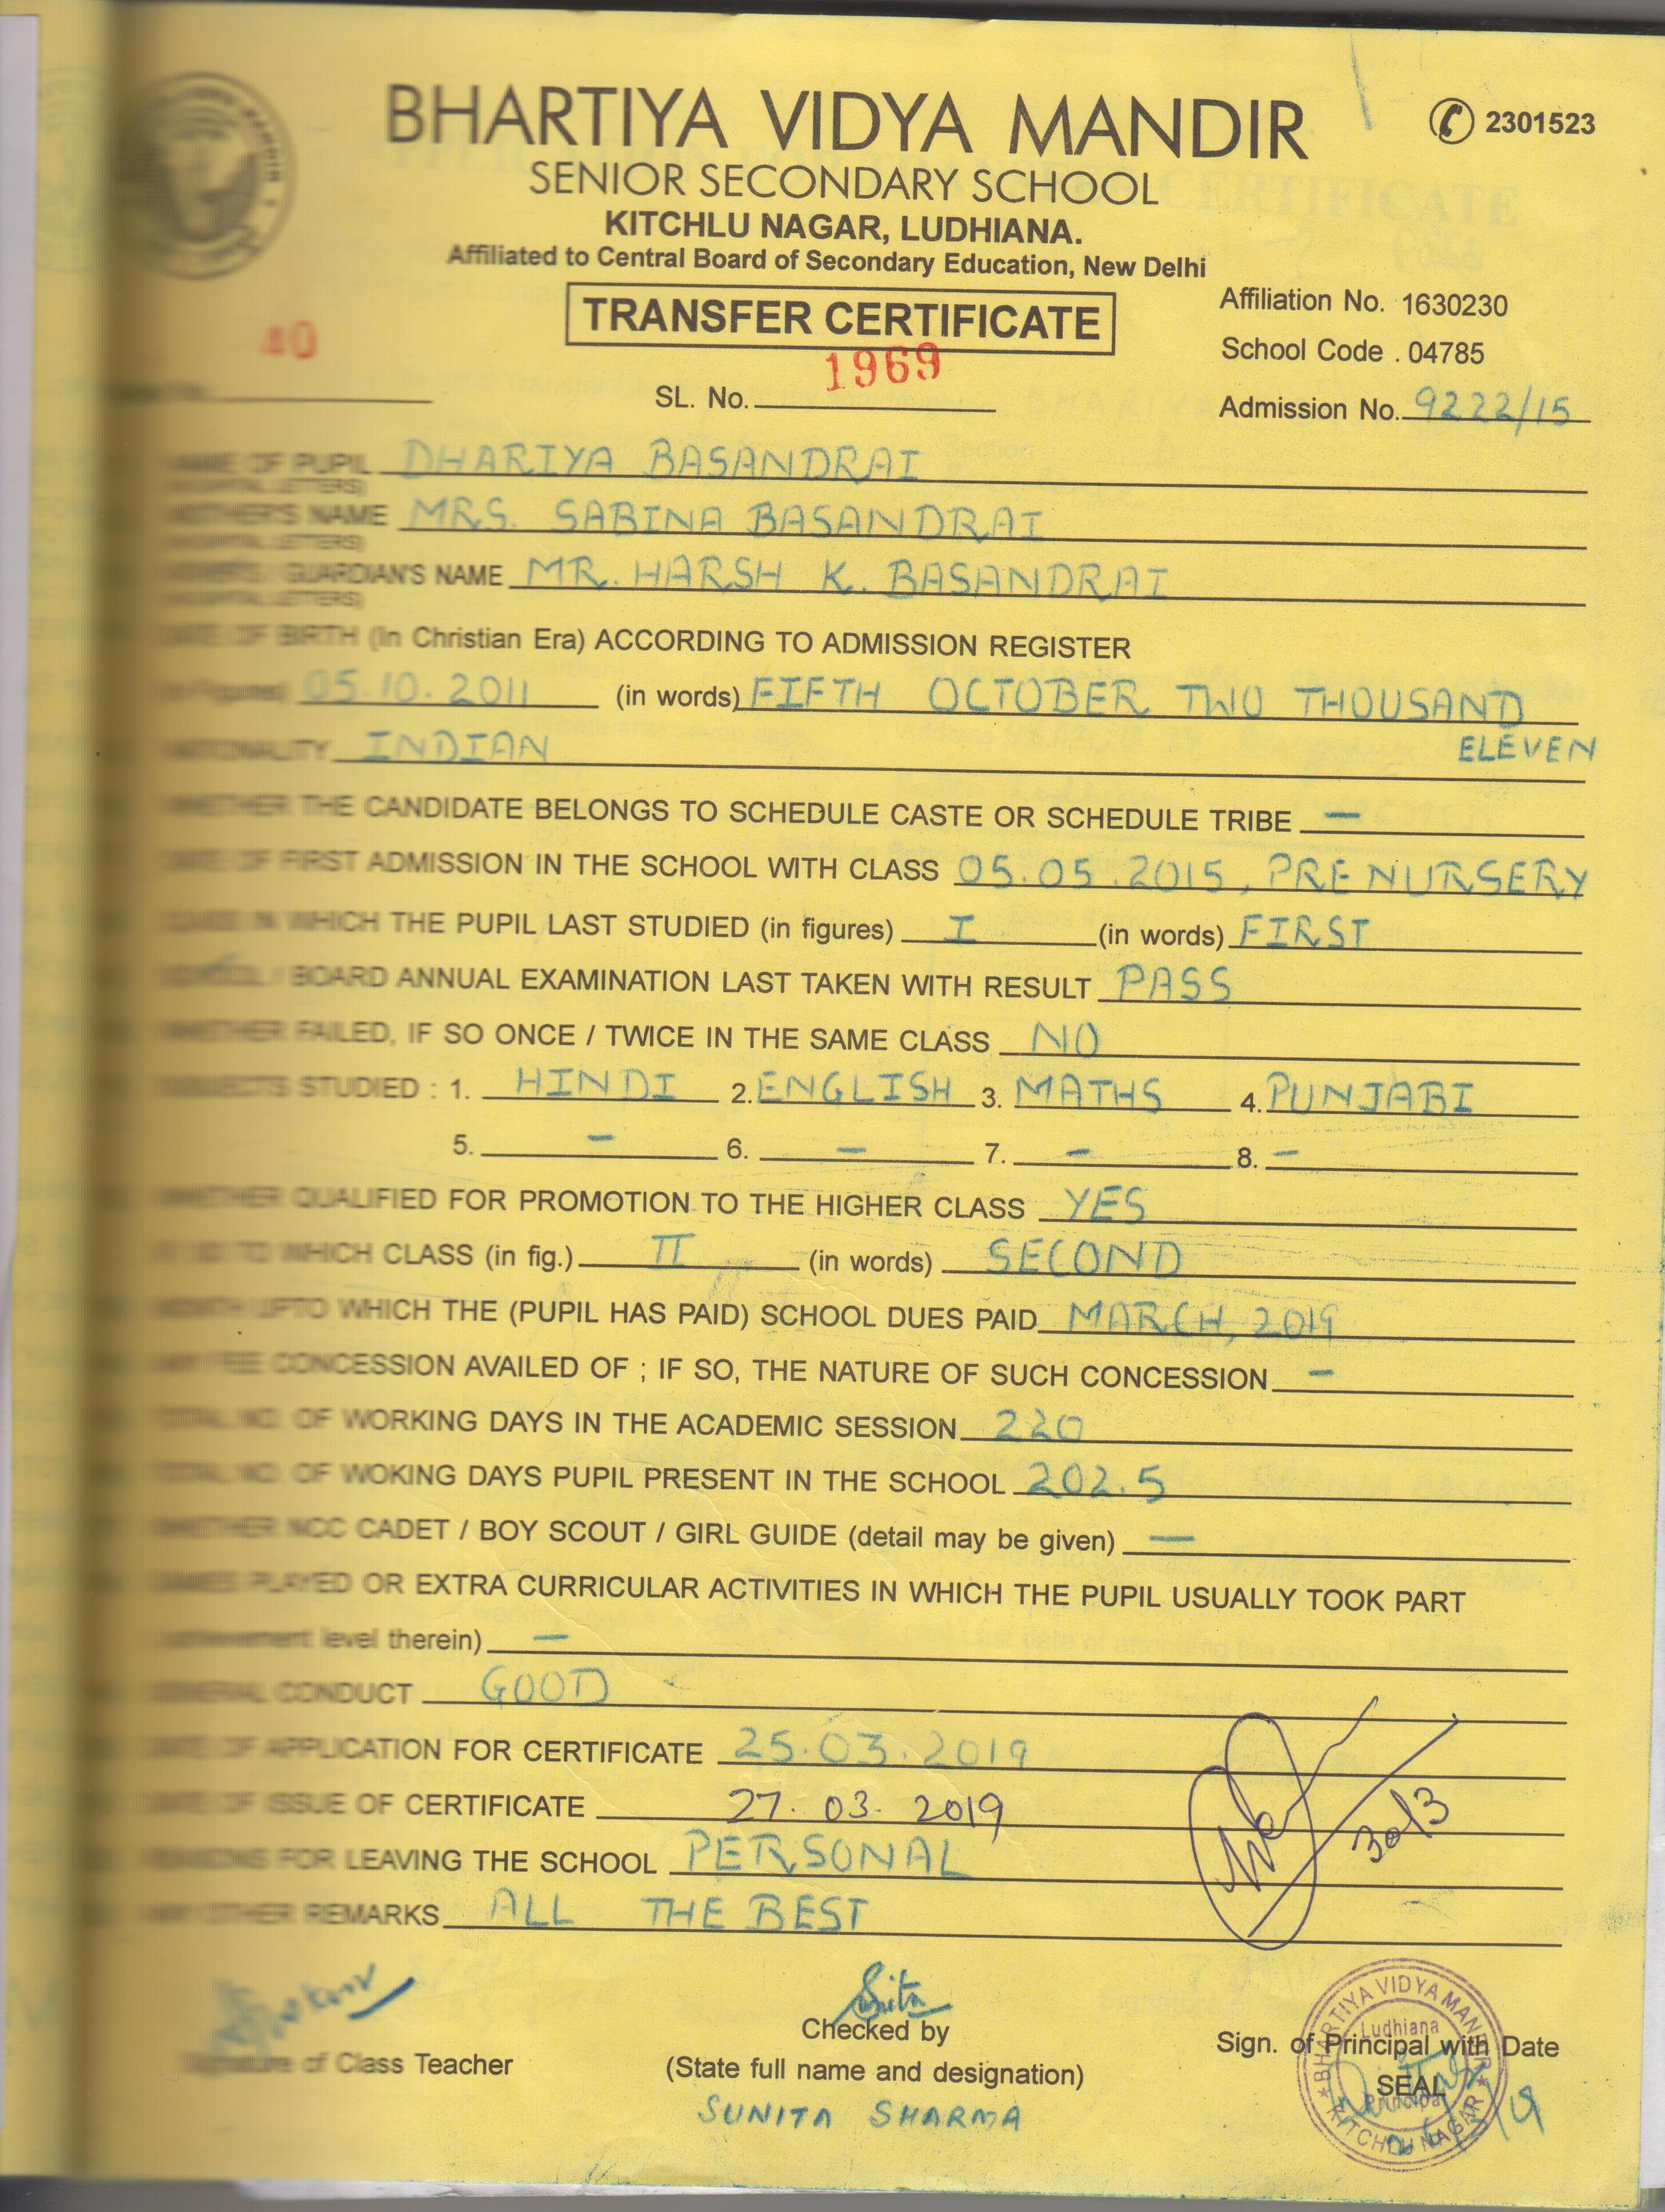 BHARTIYA VIDYA MANDIR
2301523
SENIOR SECONDARY SCHOOL
KITCHLU NAGAR, LUDHIANA.
Affiliated to Central Board of Secondary Education, New Delhi
TRANSFER CERTIFICATE
Affiliation No. 1630230
School Code . 04785
40
SL. No. 1969
Admission No. 9222/15
NAME OF PUPIL DHARIYA BASANDRAI
LETTERS)
MOTHER'S NAME MRS. SABINA BASANDRAI
LETTERS)
/ GUARDIAN'S NAME MR. HARSH K. BASANDRAI
LETTERS)
DATE OF BIRTH (In Christian Era) ACCORDING TO ADMISSION REGISTER
(in Figures) 05.10.2011 (in words) FIFTH OCTOBER TWO THOUSAND
ELEVEN
NATIONALITY INDIAN
WHETHER THE CANDIDATE BELONGS TO SCHEDULE CASTE OR SCHEDULE TRIBE —
DATE OF FIRST ADMISSION IN THE SCHOOL WITH CLASS 05.05.2015, PRE NURSERY
CLASS IN WHICH THE PUPIL LAST STUDIED (in figures) I (in words) FIRST
SCHOOL / BOARD ANNUAL EXAMINATION LAST TAKEN WITH RESULT PASS
WHETHER FAILED, IF SO ONCE / TWICE IN THE SAME CLASS NO
SUBJECTS STUDIED : 1. HINDI 2. ENGLISH 3. MATHS 4. PUNJABI
5. - 6. - 7. - 8. -
WHETHER QUALIFIED FOR PROMOTION TO THE HIGHER CLASS YES
IF SO TO WHICH CLASS (in fig.) II (in words) SECOND
MONTH UPTO WHICH THE (PUPIL HAS PAID) SCHOOL DUES PAID MARCH, 2019
ANY FEE CONCESSION AVAILED OF ; IF SO, THE NATURE OF SUCH CONCESSION -
TOTAL NO. OF WORKING DAYS IN THE ACADEMIC SESSION 220
TOTAL NO. OF WOKING DAYS PUPIL PRESENT IN THE SCHOOL 202.5
WHETHER NCC CADET / BOY SCOUT / GIRL GUIDE (detail may be given) —
GAMES PLAYED OR EXTRA CURRICULAR ACTIVITIES IN WHICH THE PUPIL USUALLY TOOK PART
achievement level therein) —
GENERAL CONDUCT GOOD
DATE OF APPLICATION FOR CERTIFICATE 25.03.2019
DATE OF ISSUE OF CERTIFICATE 27.03.2019
30/3
REASONS FOR LEAVING THE SCHOOL PERSONAL
ANY OTHER REMARKS ALL THE BEST
Sunita
Signature of Class Teacher
Checked by
(State full name and designation)
SUNITA SHARMA
Sign. of Principal with Date
SEAL
BHARTIYA VIDYA MANDIR
Ludhiana
Principal
KITCHLU NAGAR